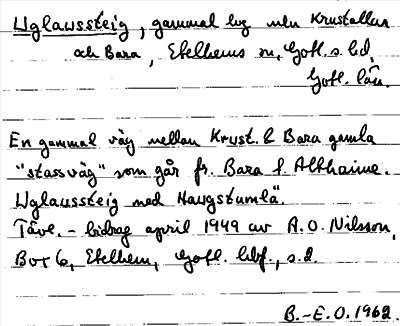 Uglaussteig, gammal väg mellan Krustallar
och Bara, Etelhems sn, Gotl. s. hd,
Gotl. län.
En gammal väg mellan Krust. & Bara gamla
"stassväg" som går fr. Bara t. Althaime.
Uglaussteig med Haugstumlä".
Tävl. - bidrag april 1949 av A. O. Nilsson,
Box 6, Etelhem, Gotl. s.d.
B.-E.O. 1962